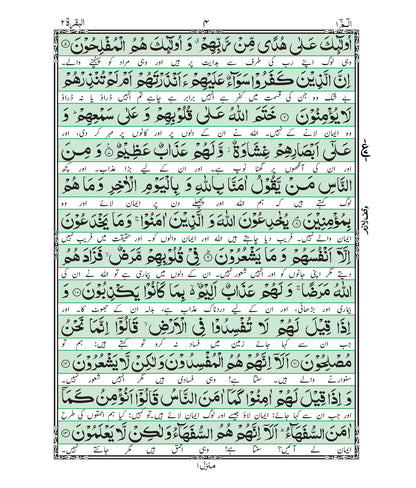 الٓمّٓ ١ ٤ البقرة ٢
اُولٰٓئِكَ عَلٰى هُدًى مِّنْ رَّبِّهِمْ ۗ وَ اُولٰٓئِكَ هُمُ الْمُفْلِحُوْنَ ۝٥
وہی لوگ اپنے رب کی طرف سے ہدایت پر ہیں اور وہی مراد کو پہنچنے والے۔
اِنَّ الَّذِيْنَ كَفَرُوْا سَوَآءٌ عَلَيْهِمْ ءَاَنْذَرْتَهُمْ اَمْ لَمْ تُنْذِرْهُمْ
بے شک وہ جن کی قسمت میں کفر ہے انہیں برابر ہے چاہے تم انہیں ڈراؤ یا نہ ڈراؤ
لَا يُؤْمِنُوْنَ ۝٦ خَتَمَ اللّٰهُ عَلٰى قُلُوْبِهِمْ وَ عَلٰى سَمْعِهِمْ ؕ وَ
وہ ایمان لانے کے نہیں۔ اللہ نے ان کے دلوں پر اور کانوں پر مہر کر دی، اور
عَلٰۤى اَبْصَارِهِمْ غِشَاوَةٌ ؗ وَّ لَهُمْ عَذَابٌ عَظِيْمٌ ۝٧ وَ مِنَ
ان کی آنکھوں پر گھٹا ٹوپ ہے، اور ان کے لیے بڑا عذاب۔ اور کچھ
النَّاسِ مَنْ يَّقُوْلُ اٰمَنَّا بِاللّٰهِ وَ بِالْيَوْمِ الْاٰخِرِ وَ مَا هُمْ
لوگ کہتے ہیں کہ ہم اللہ اور پچھلے دن پر ایمان لائے اور وہ
بِمُؤْمِنِيْنَ ۝٨ يُخٰدِعُوْنَ اللّٰهَ وَ الَّذِيْنَ اٰمَنُوْا ۚ وَ مَا يَخْدَعُوْنَ
ایمان والے نہیں۔ فریب دیا چاہتے ہیں اللہ اور ایمان والوں کو۔ اور حقیقت میں فریب نہیں
اِلَّاۤ اَنْفُسَهُمْ وَ مَا يَشْعُرُوْنَ ۝٩ فِيْ قُلُوْبِهِمْ مَّرَضٌ ۙ فَزَادَهُمُ
دیتے مگر اپنی جانوں کو اور انہیں شعور نہیں۔ ان کے دلوں میں بیماری ہے تو اللہ نے ان کی
اللّٰهُ مَرَضًا ۚ وَ لَهُمْ عَذَابٌ اَلِيْمٌ ۙ۬ بِمَا كَانُوْا يَكْذِبُوْنَ ۝١٠ وَ
بیماری اور بڑھائی، اور ان کے لیے دردناک عذاب ہے، بدلہ ان کے جھوٹ کا۔ اور
اِذَا قِيْلَ لَهُمْ لَا تُفْسِدُوْا فِي الْاَرْضِ ۙ قَالُوْۤا اِنَّمَا نَحْنُ
جو ان سے کہا جائے زمین میں فساد نہ کرو تو کہتے ہیں: ہم تو
مُصْلِحُوْنَ ۝١١ اَلَاۤ اِنَّهُمْ هُمُ الْمُفْسِدُوْنَ وَ لٰكِنْ لَّا يَشْعُرُوْنَ ۝١٢
سنوارنے والے ہیں۔ سنتا ہے! وہی فسادی ہیں مگر انہیں شعور نہیں۔
وَ اِذَا قِيْلَ لَهُمْ اٰمِنُوْا كَمَاۤ اٰمَنَ النَّاسُ قَالُوْۤا اَنُؤْمِنُ كَمَاۤ
اور جب ان سے کہا جائے: ایمان لاؤ جیسے اور لوگ ایمان لائے ہیں۔ تو کہیں: کیا ہم احمقوں کی طرح
اٰمَنَ السُّفَهَآءُ ؕ اَلَاۤ اِنَّهُمْ هُمُ السُّفَهَآءُ وَ لٰكِنْ لَّا يَعْلَمُوْنَ ۝١٣
ایمان لے آئیں؟ سنتا ہے! وہی احمق ہیں مگر جانتے نہیں۔
منزل ١